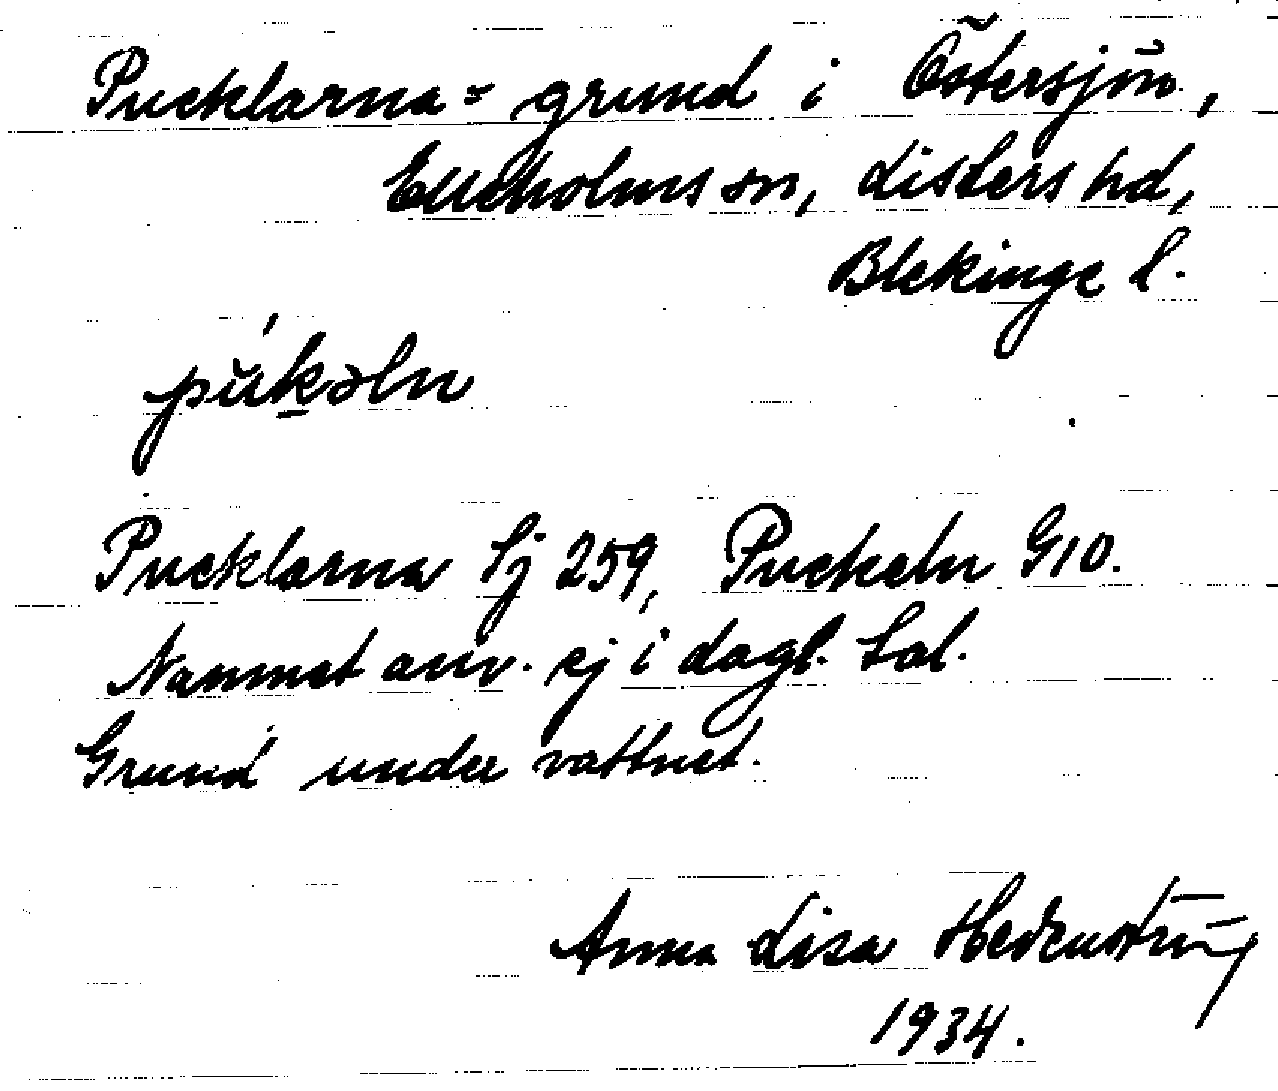 Pucklarna = grund i Östersjön,
Elleholms sn, Listers hd,
Blekinge l.
púkəln
Pucklarna Sj 259, Puckeln G10.
Namnet anv. ej i dagl. tal.
Grund under vattnet.
Anna Lisa Hedenström
1934.